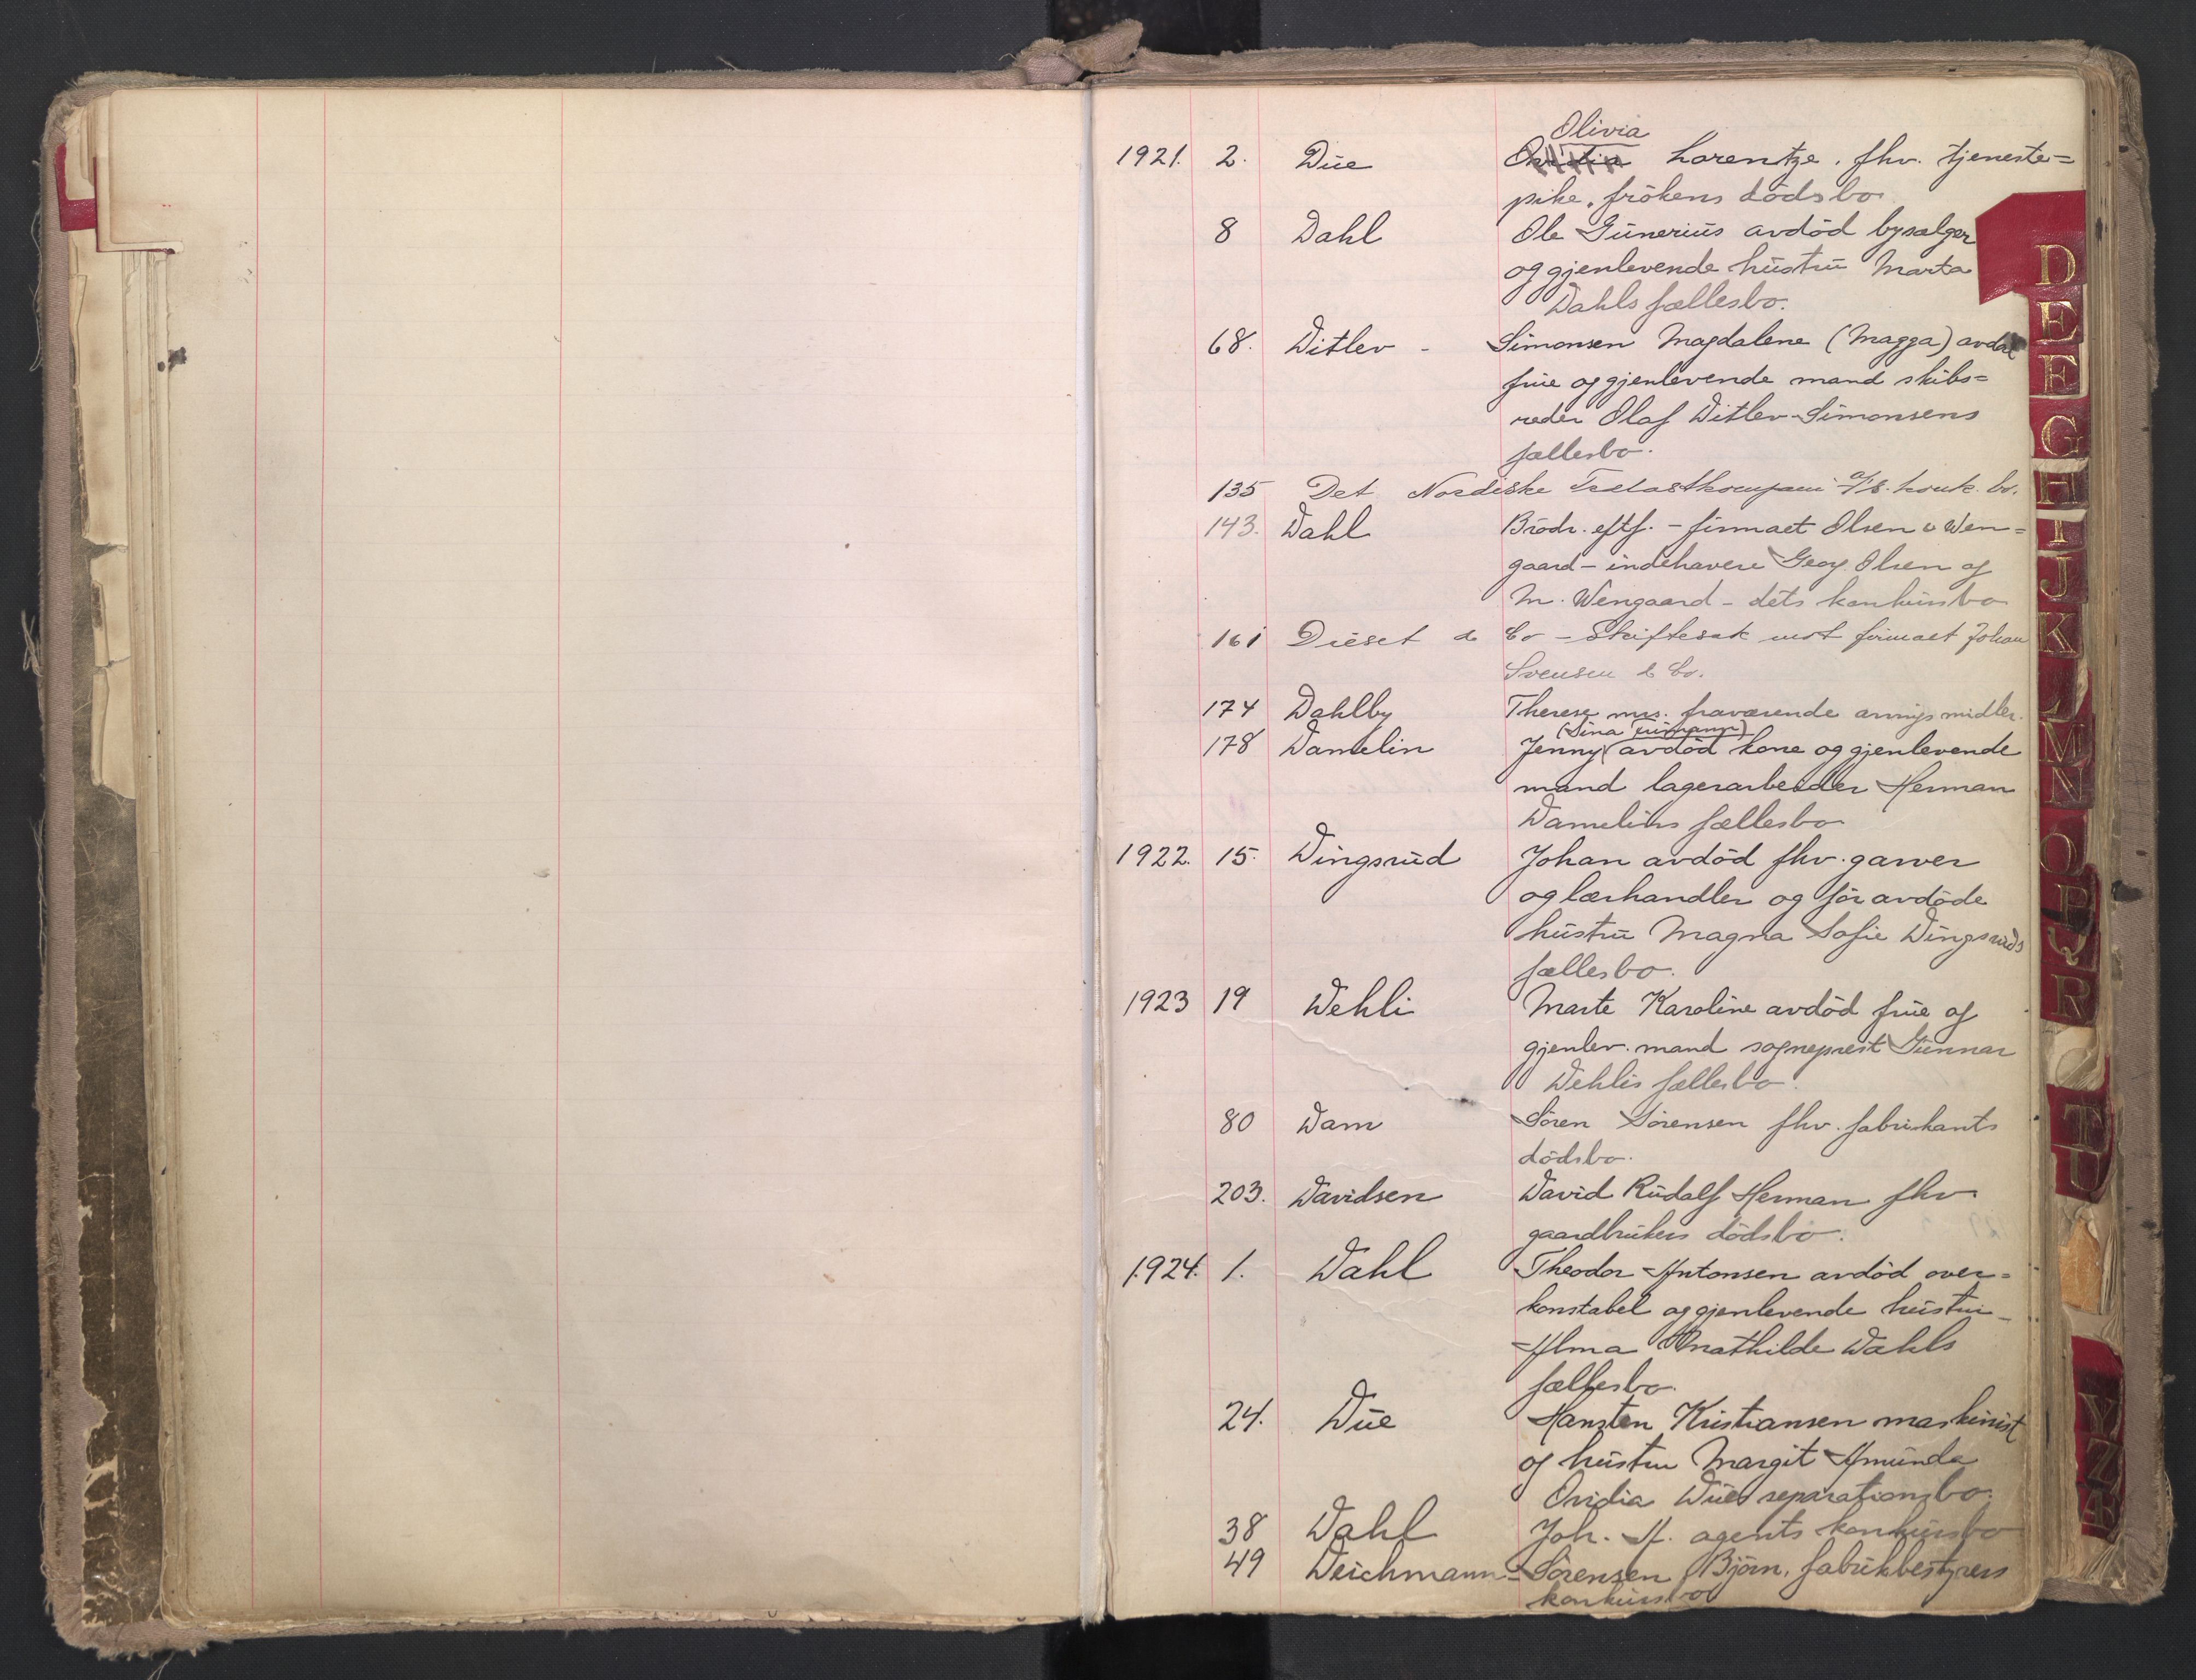 Olivia
1921. 2. Düe Lorentze. fhv. tjeneste=
pike, frökens dödsbo
8 Dahl Ole Günerius avdöd bysælger
og gjenlevende hüstrü Marta
Dahls fællesbo.
68. Ditlev - Simonsen Magdalene (Magga) avdöd
früe og gjenlevende mand skibs=
reder Olaf Ditlev-Simonsens
fællesbo.
135 Det Nordiske Trælastkompani a/s. konk. bo.
143. Dahl Brödr. eftf. - firmaet Olsen & Wen=
gaard - indehavere Georg Olsen og
M. Wengaard - dets konkürsbo
161 Dieset & Co - Skiftesak mot firmaet Johan
Svensen & Co.
174 Dahlby Therese mrs. fraværende arvings midler.
(Sina)
178 Damelin Jenny avdöd kone og gjenlevende
mand lagerarbeider Herman
Damelins fællesbo
1922. 15. Dingsrüd Johan avdöd fhv. garver
og lærhandler og för avdöde
hüstrü Magna Sofie Dingsrüds
fællesbo.
1923 19 Dehli Marte Karoline avdöd früe og
gjenlev. mand sogneprest Günnar
Dehlis fællesbo.
80 Dam Sören Sörensen fhv. fabrikants
dödsbo.
203. Davidsen David Rüdolf Herman fhv
gaardbrükers dödsbo.
1924. 1. Dahl Theodor Antonsen avdöd over=
konstabel og gjenlevende hüstrü
Alma Mathilde Dahls
fællesbo.
24. Düe Hansten Kristiansen maskinist
og hüstrü Margit Amünda
Ovidia Dües separationsbo.
38 Dahl Joh. A. agents konkürsbo
49 Deichmann=Sörensen, Björn, fabrikbestyrers
konkürsbo
D
E
F
G
H
I
J
K
L
M
N
O
P
Q
R
T
U
Y
Z
Å